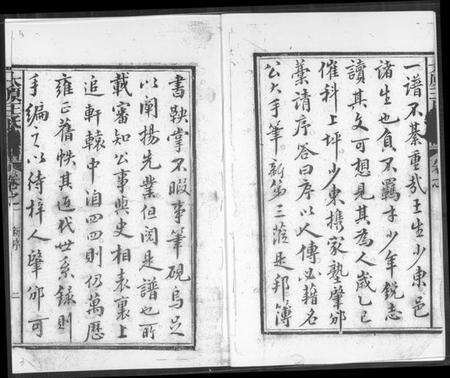 一譜不綦重哉王生少東邑
諸生也負不羈才少年銳志
讀其文可想見其為人歲乙巳
催科上坪少東攜家塾肇邠
藁請序答曰序以人傳必藉名
公大手筆新第三蒞是邦簿
書鞅掌不暇事筆硯烏足
以闡揚先業但閱是譜也所
載審知公事與史相表裏上
追軒轅中洎四四則仍萬歷
雍正舊帙其近代世系錄則
手編之以待梓人肇邠可
卷之一
新序
二